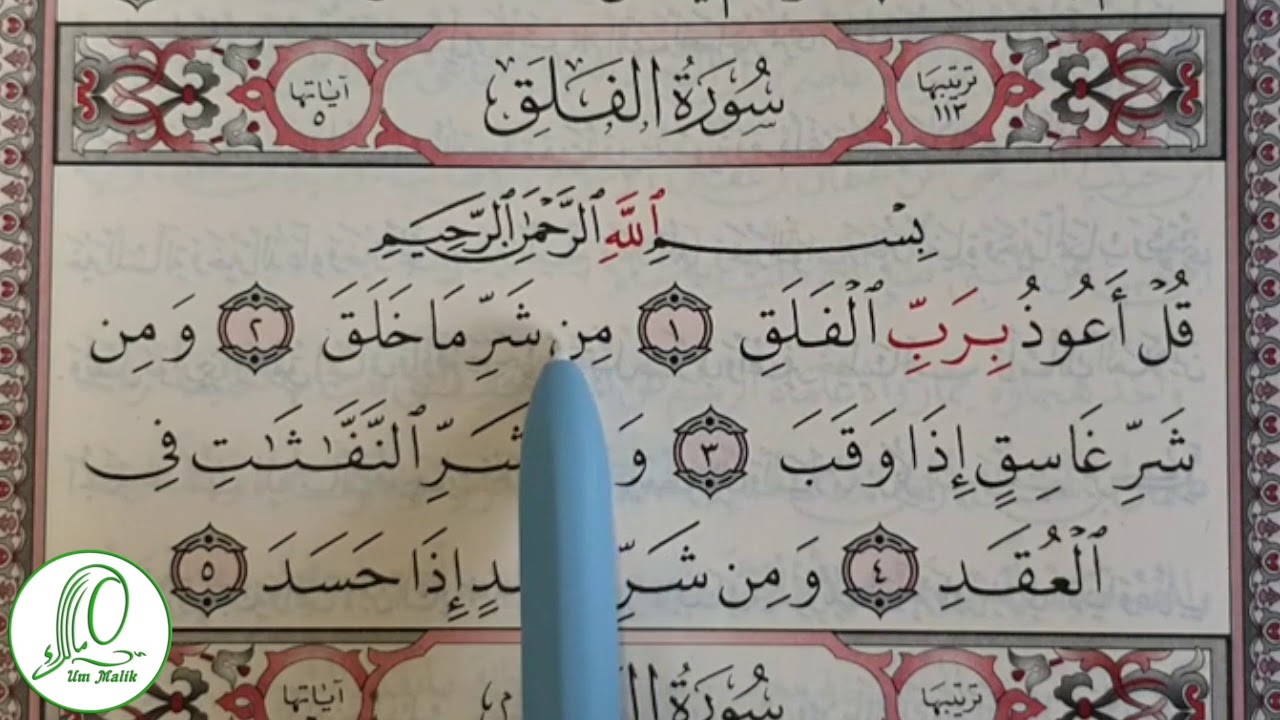 ترتيبها ١١٣ سُورَةُ الفَلَقِ آياتها ٥
بِسْمِ ٱللَّهِ ٱلرَّحْمَٰنِ ٱلرَّحِيمِ
قُلْ أَعُوذُ بِرَبِّ ٱلْفَلَقِ ١ مِن شَرِّ مَا خَلَقَ ٢ وَمِن
شَرِّ غَاسِقٍ إِذَا وَقَبَ ٣ شَرِّ ٱلنَّفَّٰثَٰتِ فِي
ٱلْعُقَدِ ٤ وَمِن شَرِّ إِذَا حَسَدَ ٥
ترتيبها سُورَةُ آياتها
مالك
Um Malik